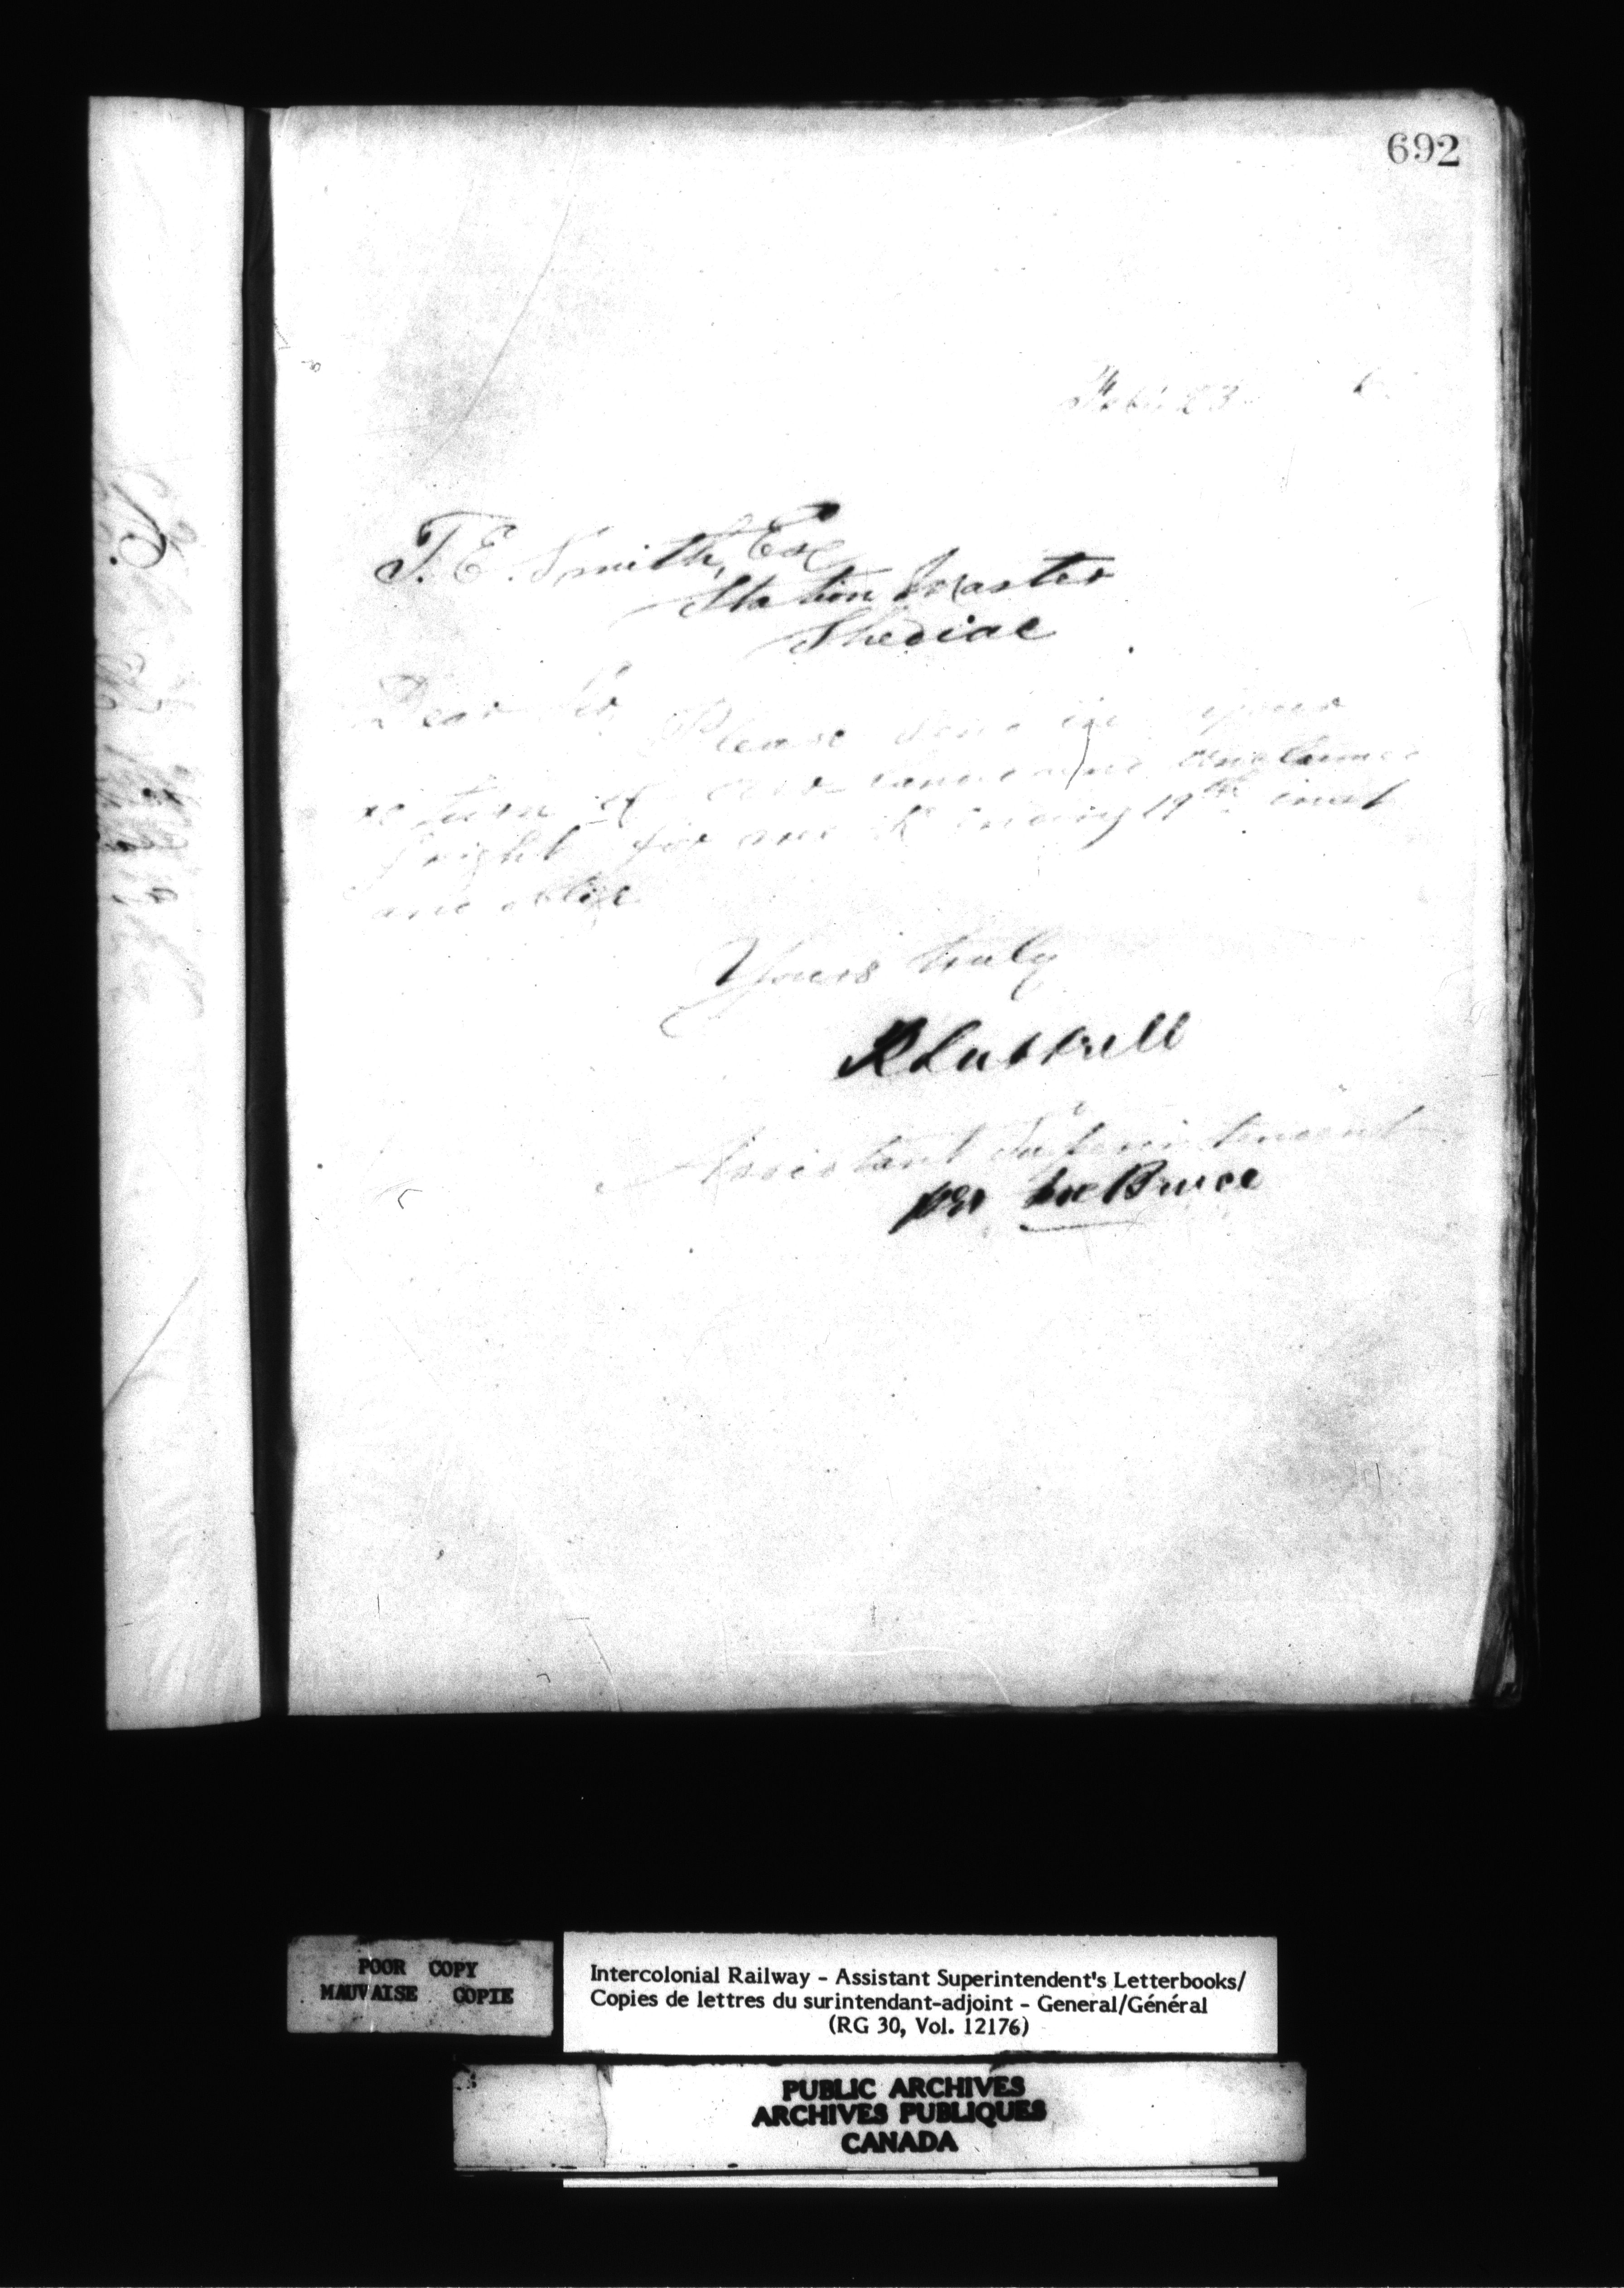 692
Feby 23
T. E. Smith, Esq
Station Master
Shediac
Dear Sir
Please send in your
return of over land and unclaimed
freight for week ending 19th inst
and oblige
Yours truly
R Luttrell
Assistant Superintendent
per Bruce
POOR COPY
MAUVAISE COPIE
Intercolonial Railway - Assistant Superintendent's Letterbooks/
Copies de lettres du surintendant-adjoint - General/Général
(RG 30, Vol. 12176)
PUBLIC ARCHIVES
ARCHIVES PUBLIQUES
CANADA